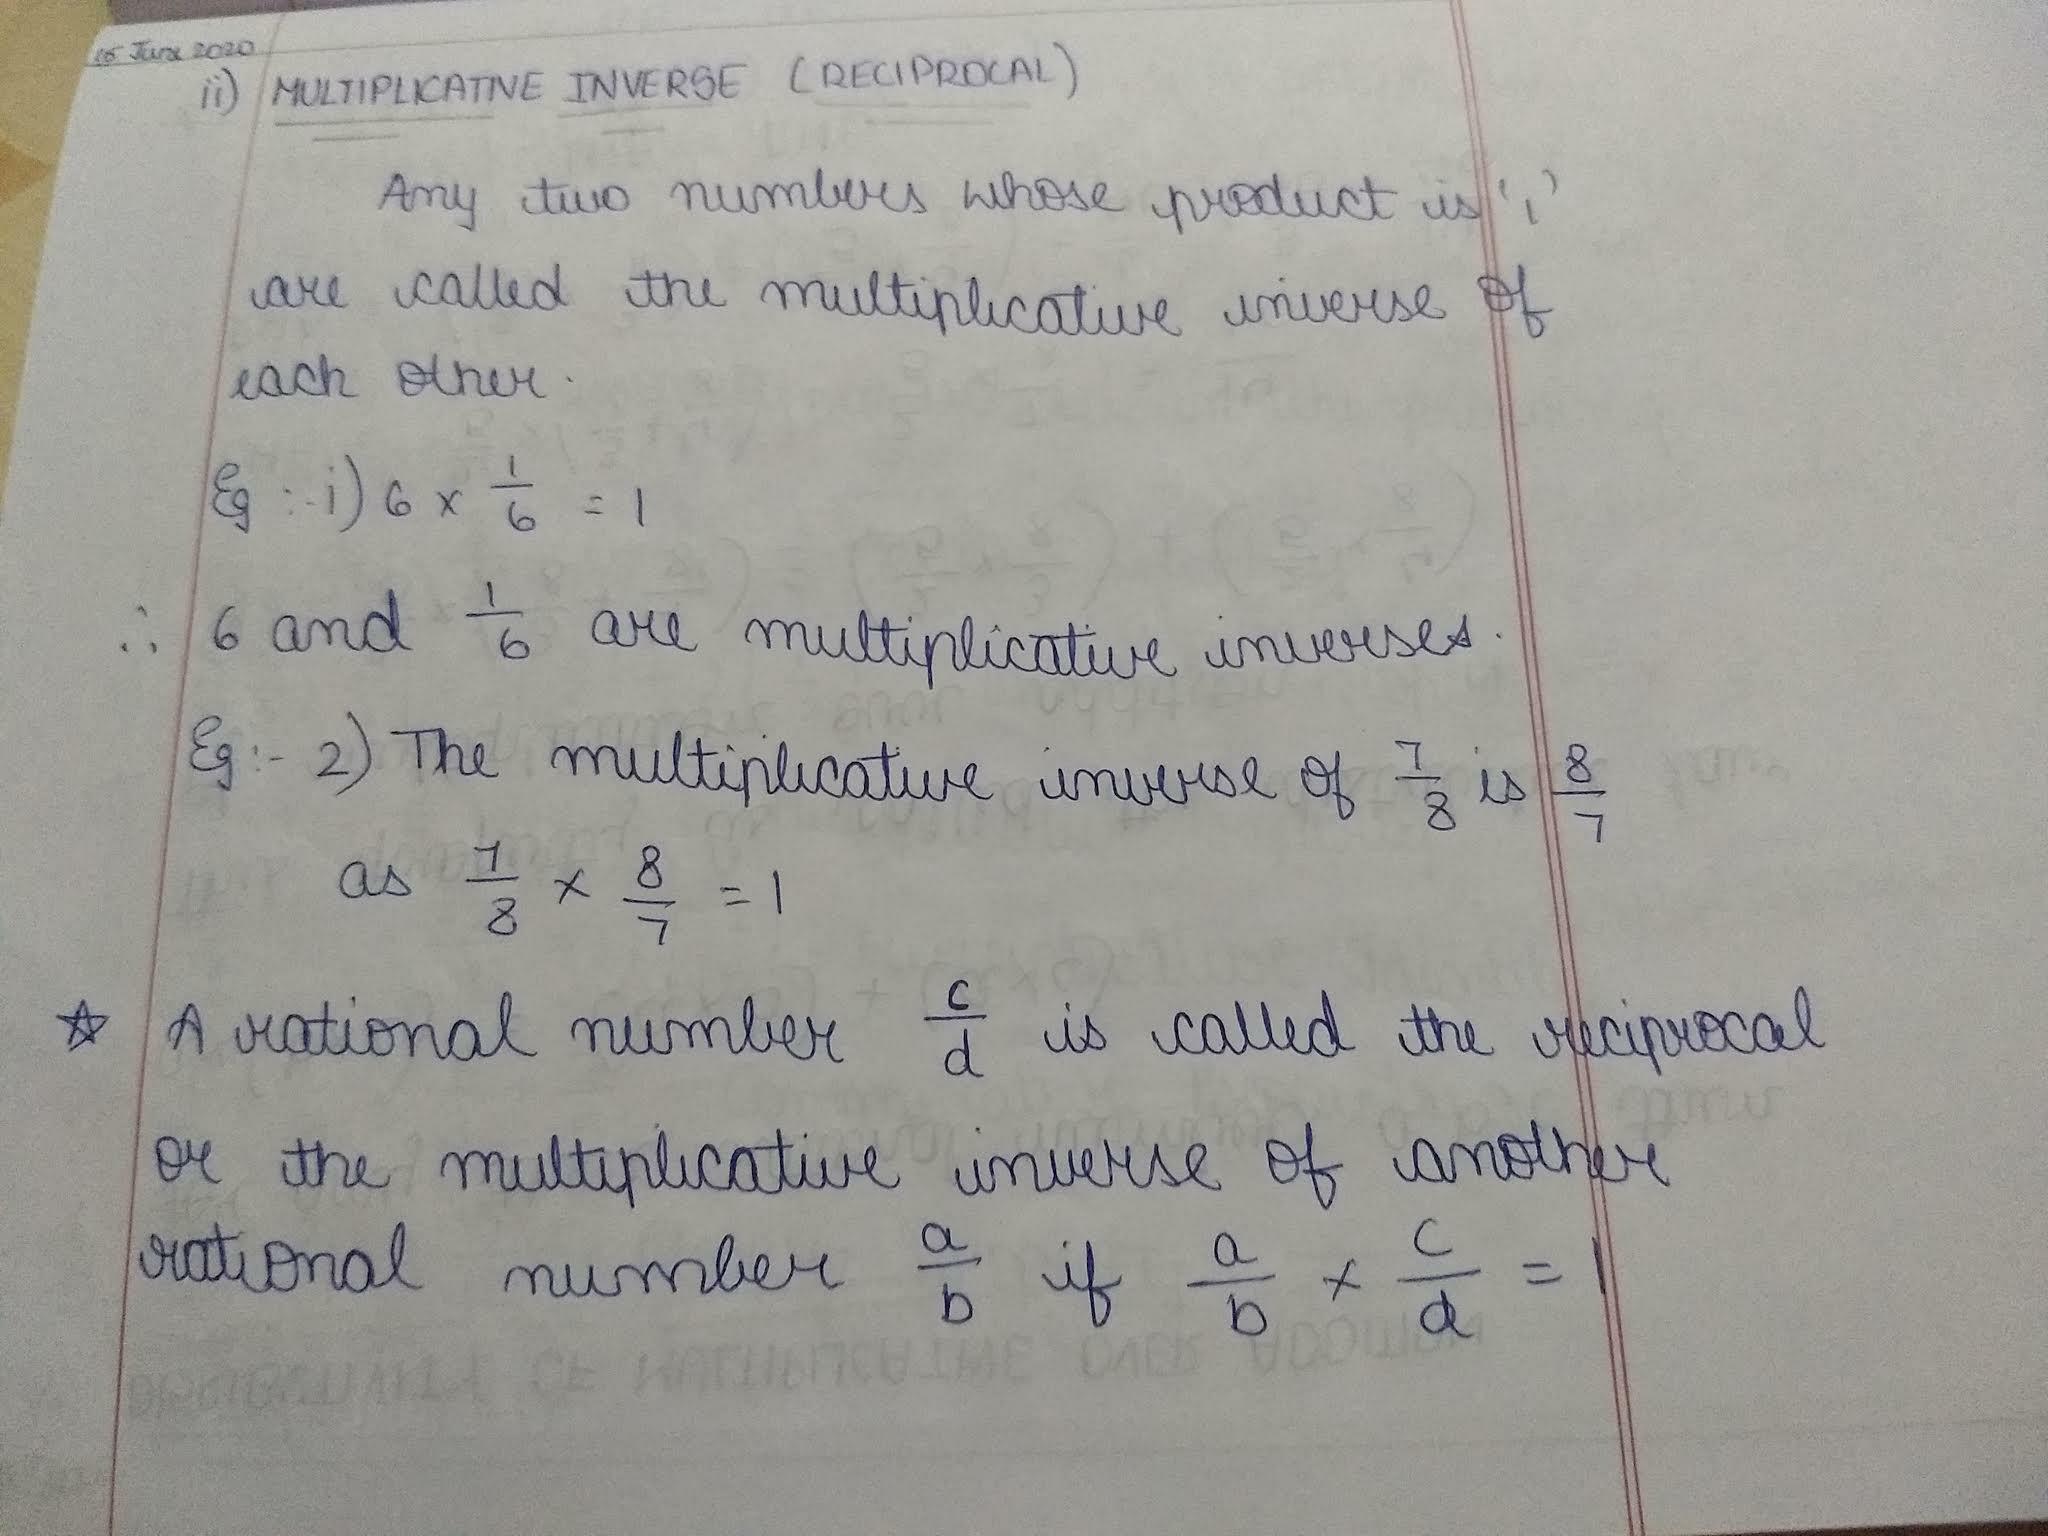 15 June 2020
ii) MULTIPLICATIVE INVERSE (RECIPROCAL)
Any two numbers whose product is '1'
are called the multiplicative inverse of
each other.
Eg :- i) 6 × 1/6 = 1
∴ 6 and 1/6 are multiplicative inverses.
Eg :- 2) The multiplicative inverse of 7/8 is 8/7
as 7/8 × 8/7 = 1
☆ A rational number c/d is called the reciprocal
or the multiplicative inverse of another
rational number a/b if a/b × c/d = 1